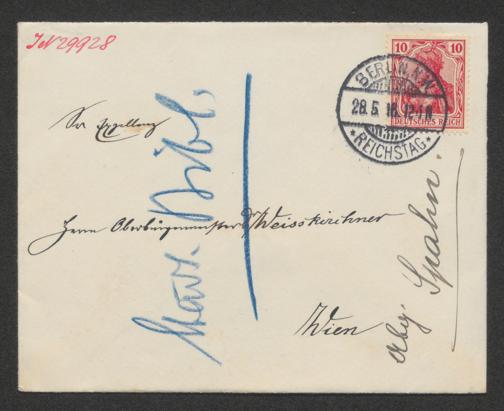 IN 29928
10 10
DEUTSCHES REICH
BERLIN, N.W.
28.5.16. 12-1 N.
* REICHSTAG *
Sr Exzellenz
Herrn Oberbürgermeister Dr Weisskirchner
Wien
Bibl.
Abg. Spahn.